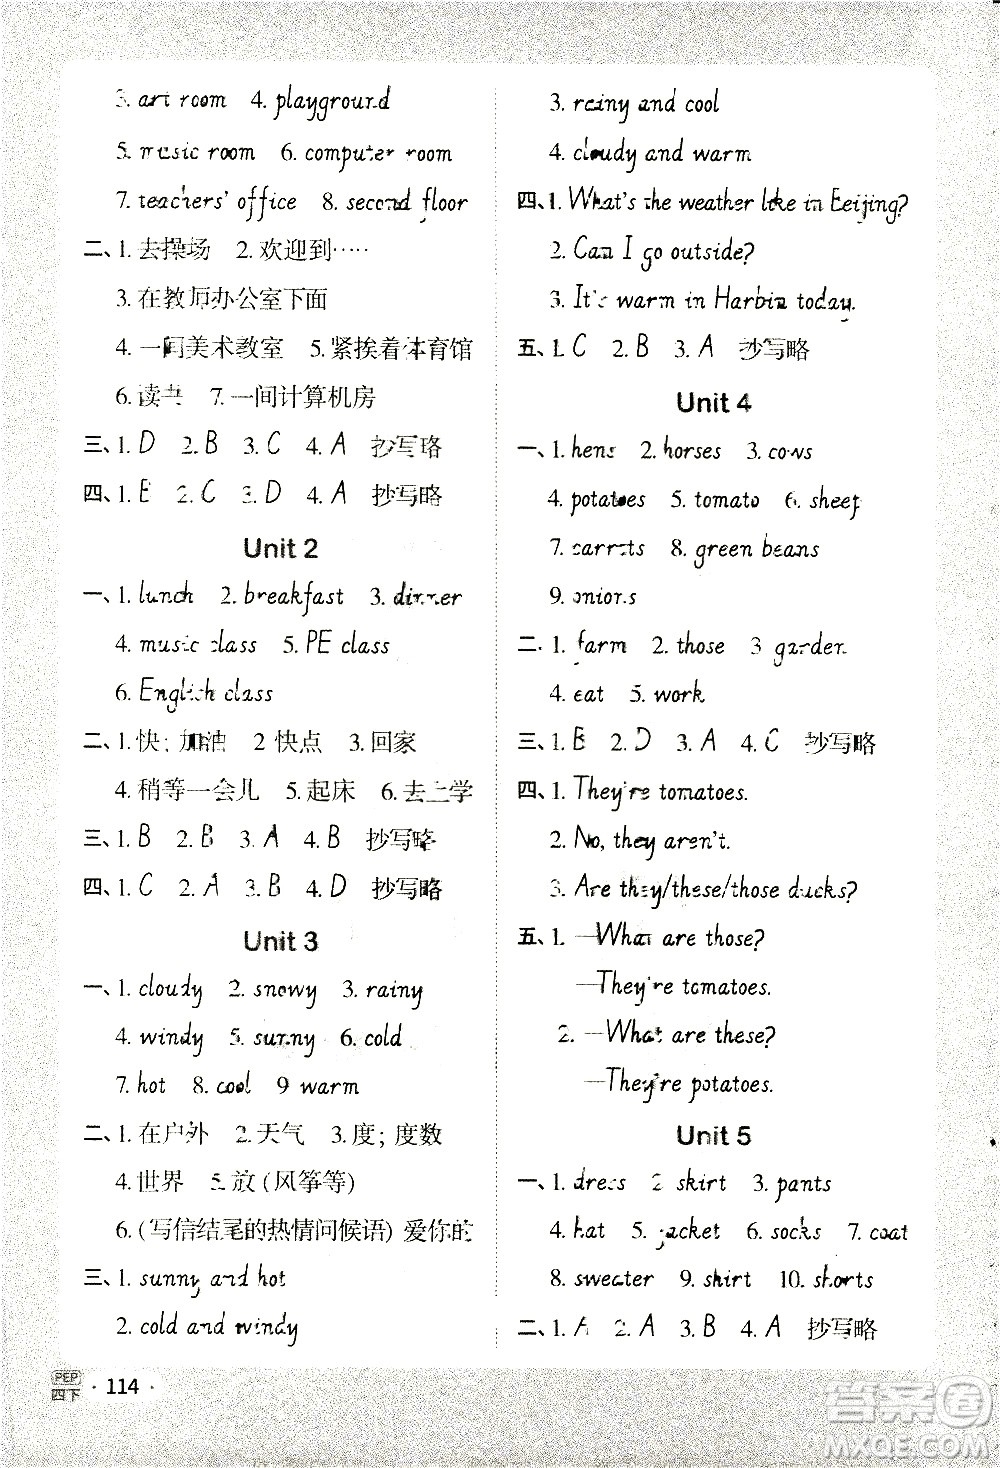 3. art room 4. playground
5. music room 6. computer room
7. teachers' office 8. second floor
二、1. 去操场 2. 欢迎到……
3. 在教师办公室下面
4. 一间美术教室 5. 紧挨着体育馆
6. 读书 7. 一间计算机房
三、1. D 2. B 3. C 4. A 抄写略
四、1. E 2. C 3. D 4. A 抄写略
Unit 2
一、1. lunch 2. breakfast 3. dinner
4. music class 5. PE class
6. English class
二、1. 快；加油 2 快点 3. 回家
4. 稍等一会儿 5. 起床 6. 去上学
三、1. B 2. B 3. A 4. B 抄写略
四、1. C 2. A 3. B 4. D 抄写略
Unit 3
一、1. cloudy 2. snowy 3. rainy
4. windy 5. sunny 6. cold
7. hot 8. cool 9 warm
二、1. 在户外 2. 天气 3. 度；度数
4. 世界 5. 放(风筝等)
6. (写信结尾的热情问候语) 爱你的
三、1. sunny and hot
2. cold and windy
3. rainy and cool
4. cloudy and warm
四、1. What's the weather like in Beijing?
2. Can I go outside?
3. It's warm in Harbin today.
五、1. C 2. B 3. A 抄写略
Unit 4
一、1. hens 2. horses 3. cows
4. potatoes 5. tomato 6. sheep
7. carrots 8. green beans
9. onions
二. 1. farm 2. those 3 garden
4. eat 5. work
三、1. B 2. D 3. A 4. C 抄写略
四、1. They're tomatoes.
2. No, they aren't.
3. Are they/these/those ducks?
五、1. —What are those?
—They're tomatoes.
2. —What are these?
—They're potatoes.
Unit 5
一、1. dress 2 skirt 3. pants
4. hat 5. jacket 6. socks 7. coat
8. sweater 9. shirt 10. shorts
二、1. A 2. A 3. B 4. A 抄写略
PEP
四下 · 114 ·
答案圈
MXQE.COM